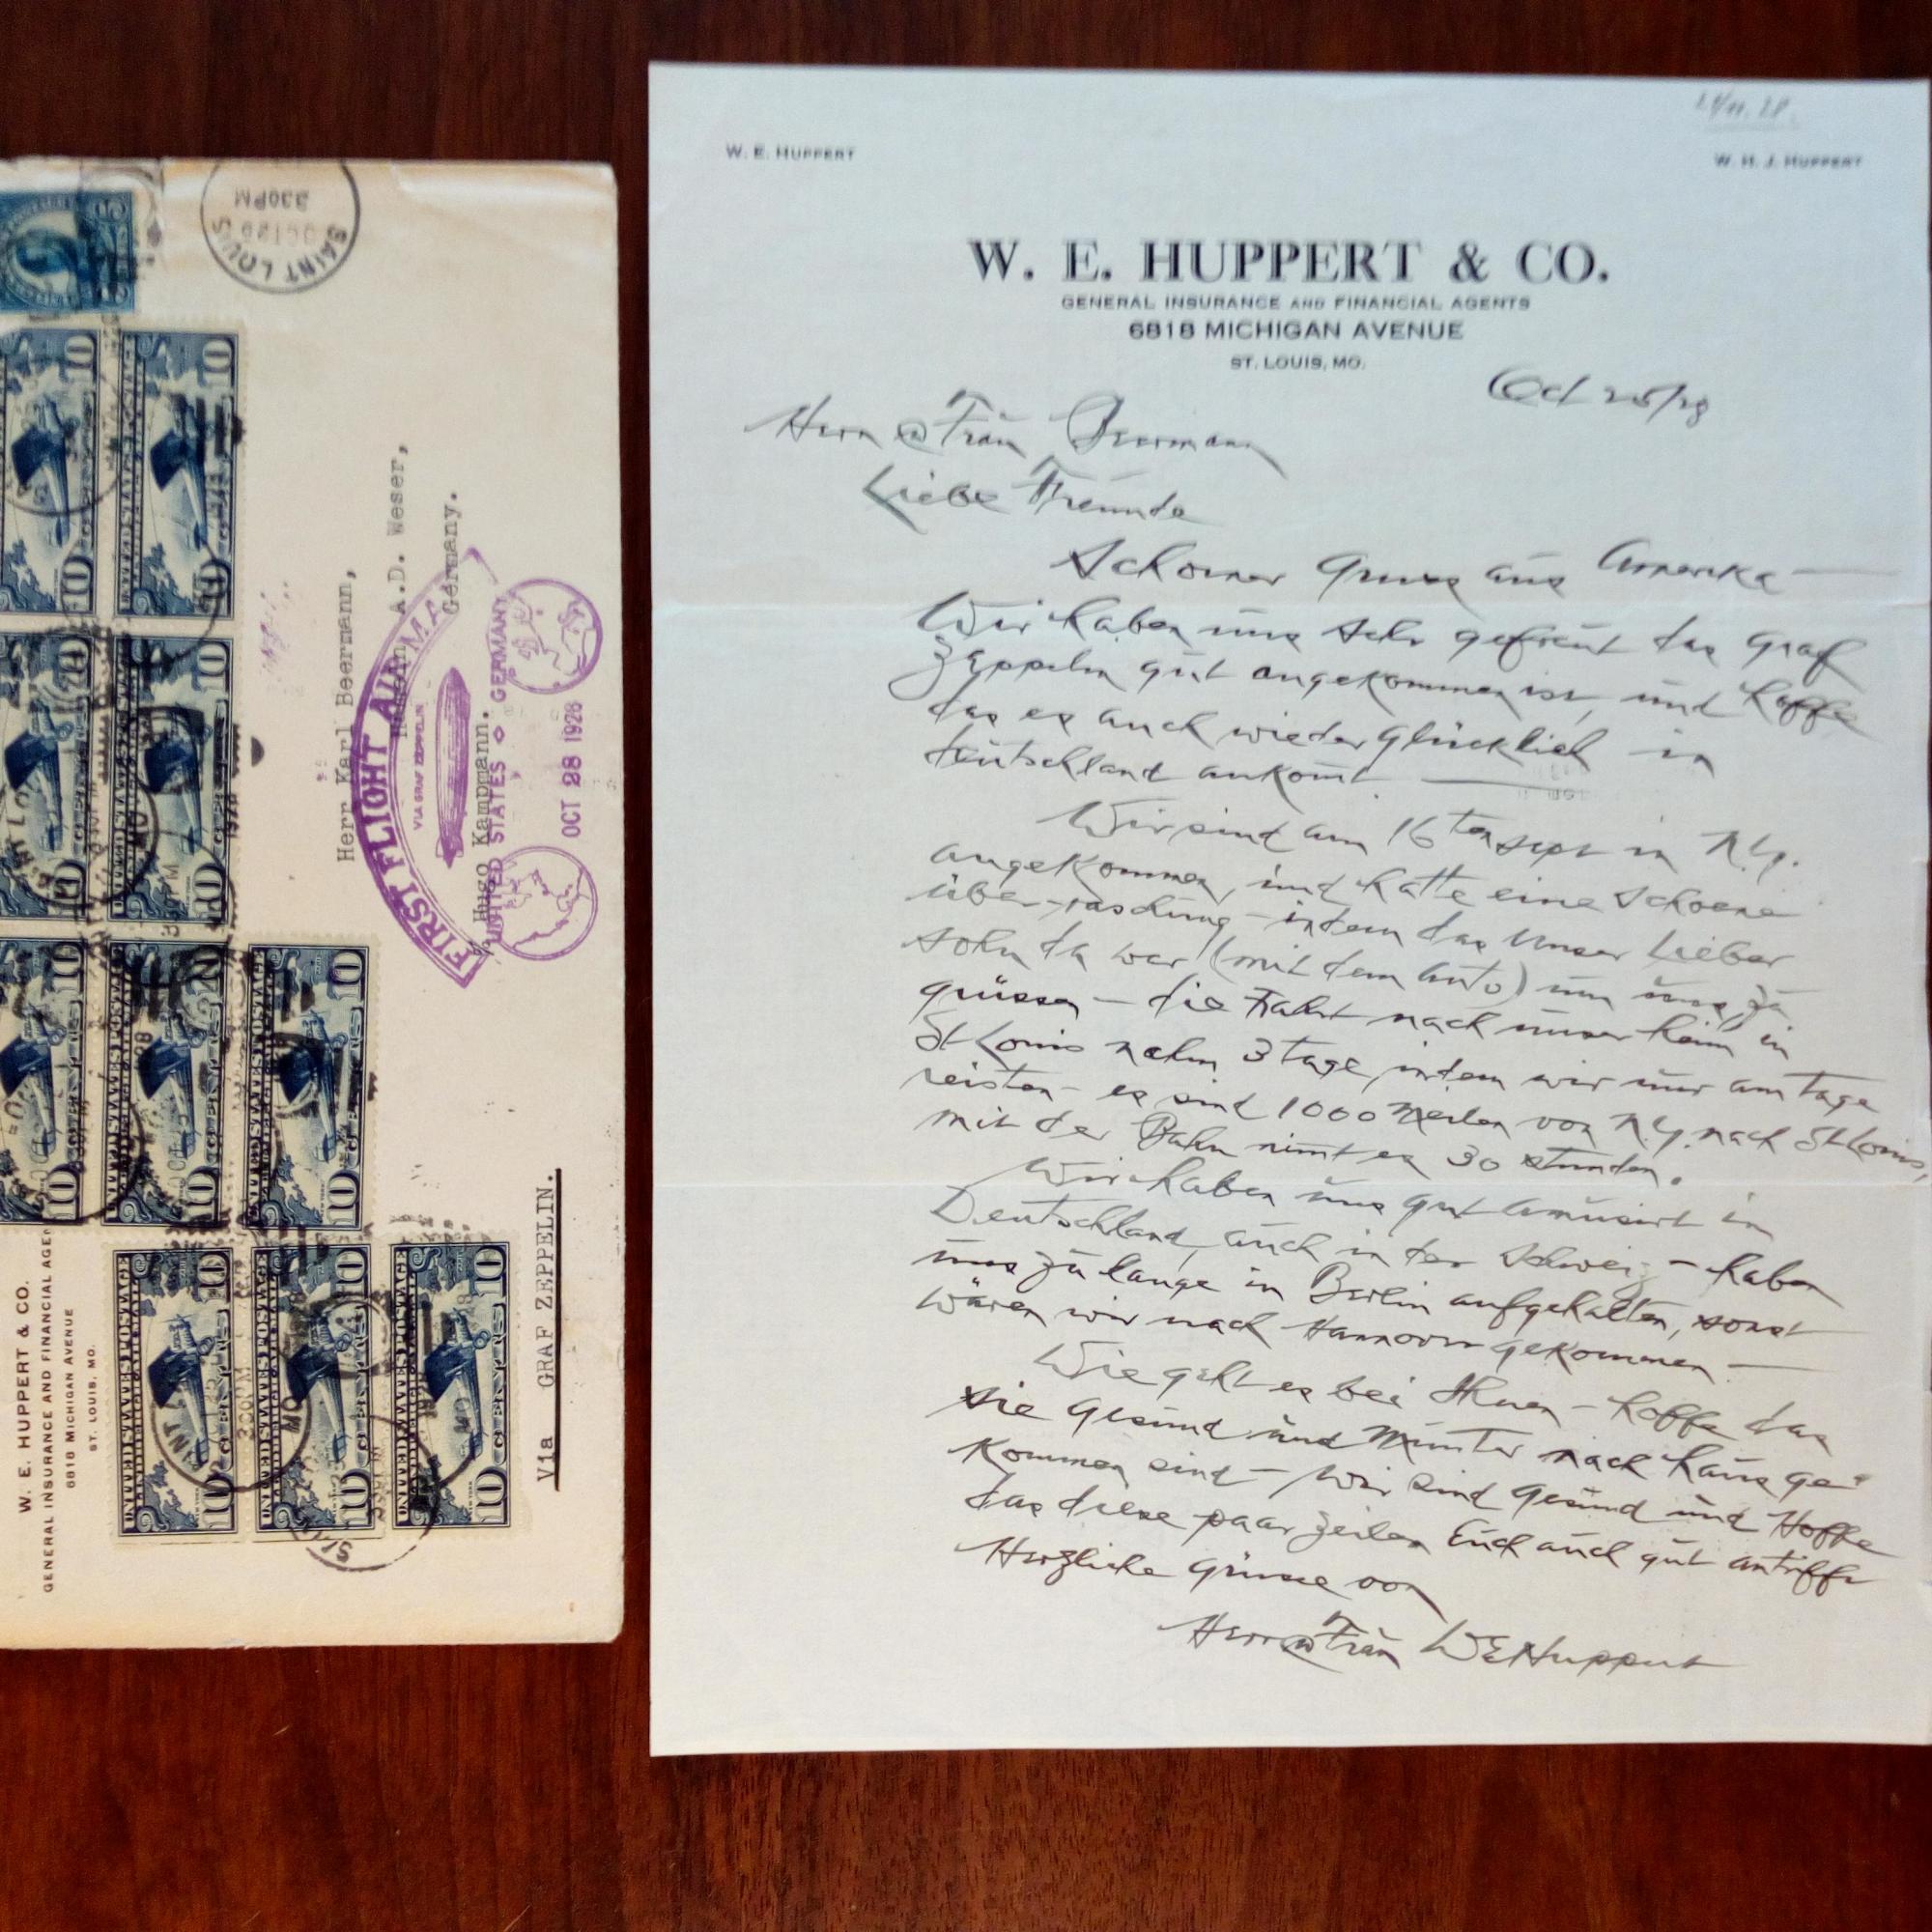 W. E. HUPPERT & CO.
GENERAL INSURANCE AND FINANCIAL AGEN
6818 MICHIGAN AVENUE
ST. LOUIS, MO.
SAINT LOUIS
330PM
UNITED STATES POSTAGE
10
Herr Karl Beermann,
Hugo Kampmann.
A.D. Weser,
Germany.
FIRST FLIGHT AIR MAIL
VIA GRAF ZEPPELIN
UNITED STATES GERMANY
OCT 28 1928
Via GRAF ZEPPELIN.
W. E. HUPPERT
W. H. J. HUPPERT
W. E. HUPPERT & CO.
GENERAL INSURANCE AND FINANCIAL AGENTS
6818 MICHIGAN AVENUE
ST. LOUIS, MO.
Oct 25/28
Herr & Frau Beermann
Liebe Freunde
Schoener Gruss aus Amerika —
Wir haben uns sehr gefreut das Graf
Zeppelin gut angekommen ist, und hoffe
das es auch wieder glücklich in
Deutschland ankomt —
Wir sind am 16ten Sept in N.Y.
angekommen, und hatte eine schoene
überraschung – indem das unser Lieber
sohn da war (mit dem Auto) um uns zu
grüssen – die Fahrt nach unser heim in
St Louis nahm 3 tage, indem wir nur am tage
reisten – es sind 1000 Meilen von N.Y. nach St Louis,
mit der Bahn nimt es 30 stunden.
Wir haben uns gut amusirt in
Deutschland, auch in der Schweiz – haben
uns zu lange in Berlin aufgehalten, sonst
wären wir nach Hannover gekommen —
Wie geht es bei Ihnen – hoffe das
Sie Gesund und Munter nach haus ge-
kommen sind – Wir sind Gesund und Hoffe
das diese paar zeilen Euch auch gut antriffe
Herzliche Grüsse von
Herr & Frau W E Huppert